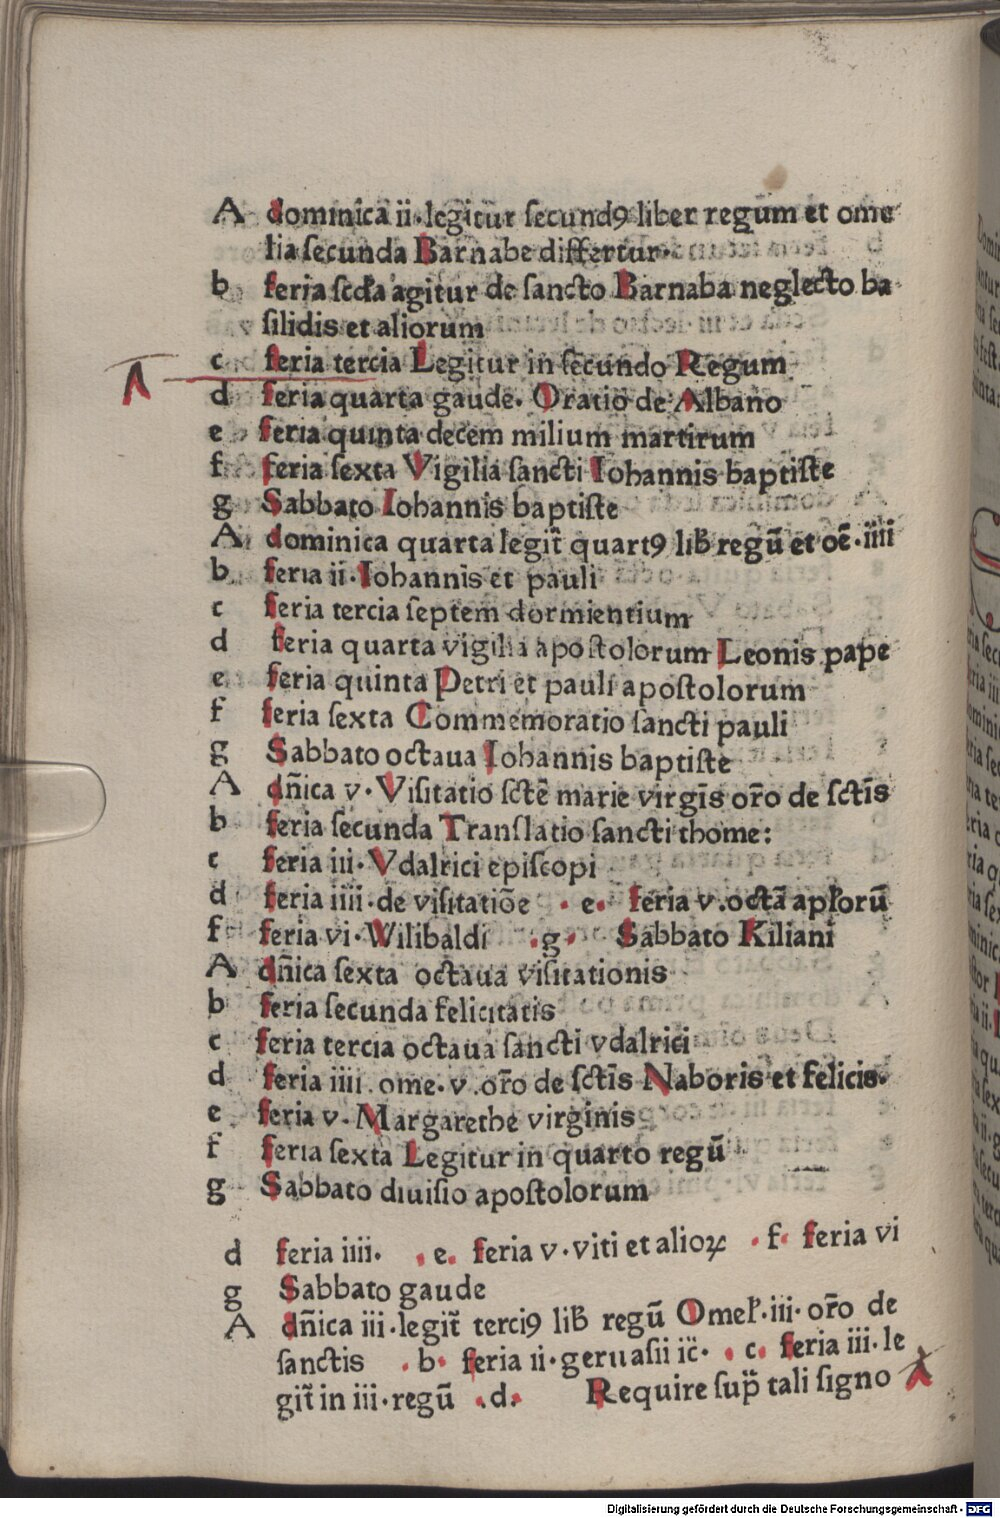 A dominica ii·legitur secundꝰ liber regum et ome
lia secunda Barnabe differtur·
b feria scd'a agitur de sancto Barnaba neglecto ba
silidis et aliorum
c feria tercia Legitur in secundo Regum
d feria quarta gaude· Oratio de Albano
e feria quinta decem milium martirum
f feria sexta Vigilia sancti Iohannis baptiste
g Sabbato Iohannis baptiste
A dominica quarta legit̃ quartꝰ lib̃ regũ et oẽ·iiii
b feria ii·Iohannis et pauli
c feria tercia septem dormientium
d feria quarta vigilia apostolorum Leonis pape
e feria quinta Petri et pauli apostolorum
f feria sexta Commemoratio sancti pauli
g Sabbato octaua Iohannis baptiste
A dñica v·Visitatio sctẽ marie virgĩs or̃o de sctĩs
b feria secunda Translatio sancti thome:
c feria iii·Vdalrici episcopi
d feria iiii·de visitatiõe · e· feria v·octã apl'orũ
f feria vi·Wilibaldi ·g· Sabbato Kiliani
A dñica sexta octaua visitationis
b feria secunda felicitatis
c feria tercia octaua sancti vdalrici
d feria iiii·ome·v·or̃o de sctĩs Naboris et felicis·
e feria v·Margarethe virginis
f feria sexta Legitur in quarto regũ
g Sabbato diuisio apostolorum
d feria iiii· ·e· feria v·viti et alioꝝ ·f· feria vi
g Sabbato gaude
A dñica iii·legit̃ terciꝰ lib̃ regũ Omel'·iii·or̃o de
sanctis ·b· feria ii·geruasii ic̃· ·c· feria iii·le
git̃ in iii·regũ ·d· Require sup̃ tali signo
Digitalisierung gefördert durch die Deutsche Forschungsgemeinschaft - DFG